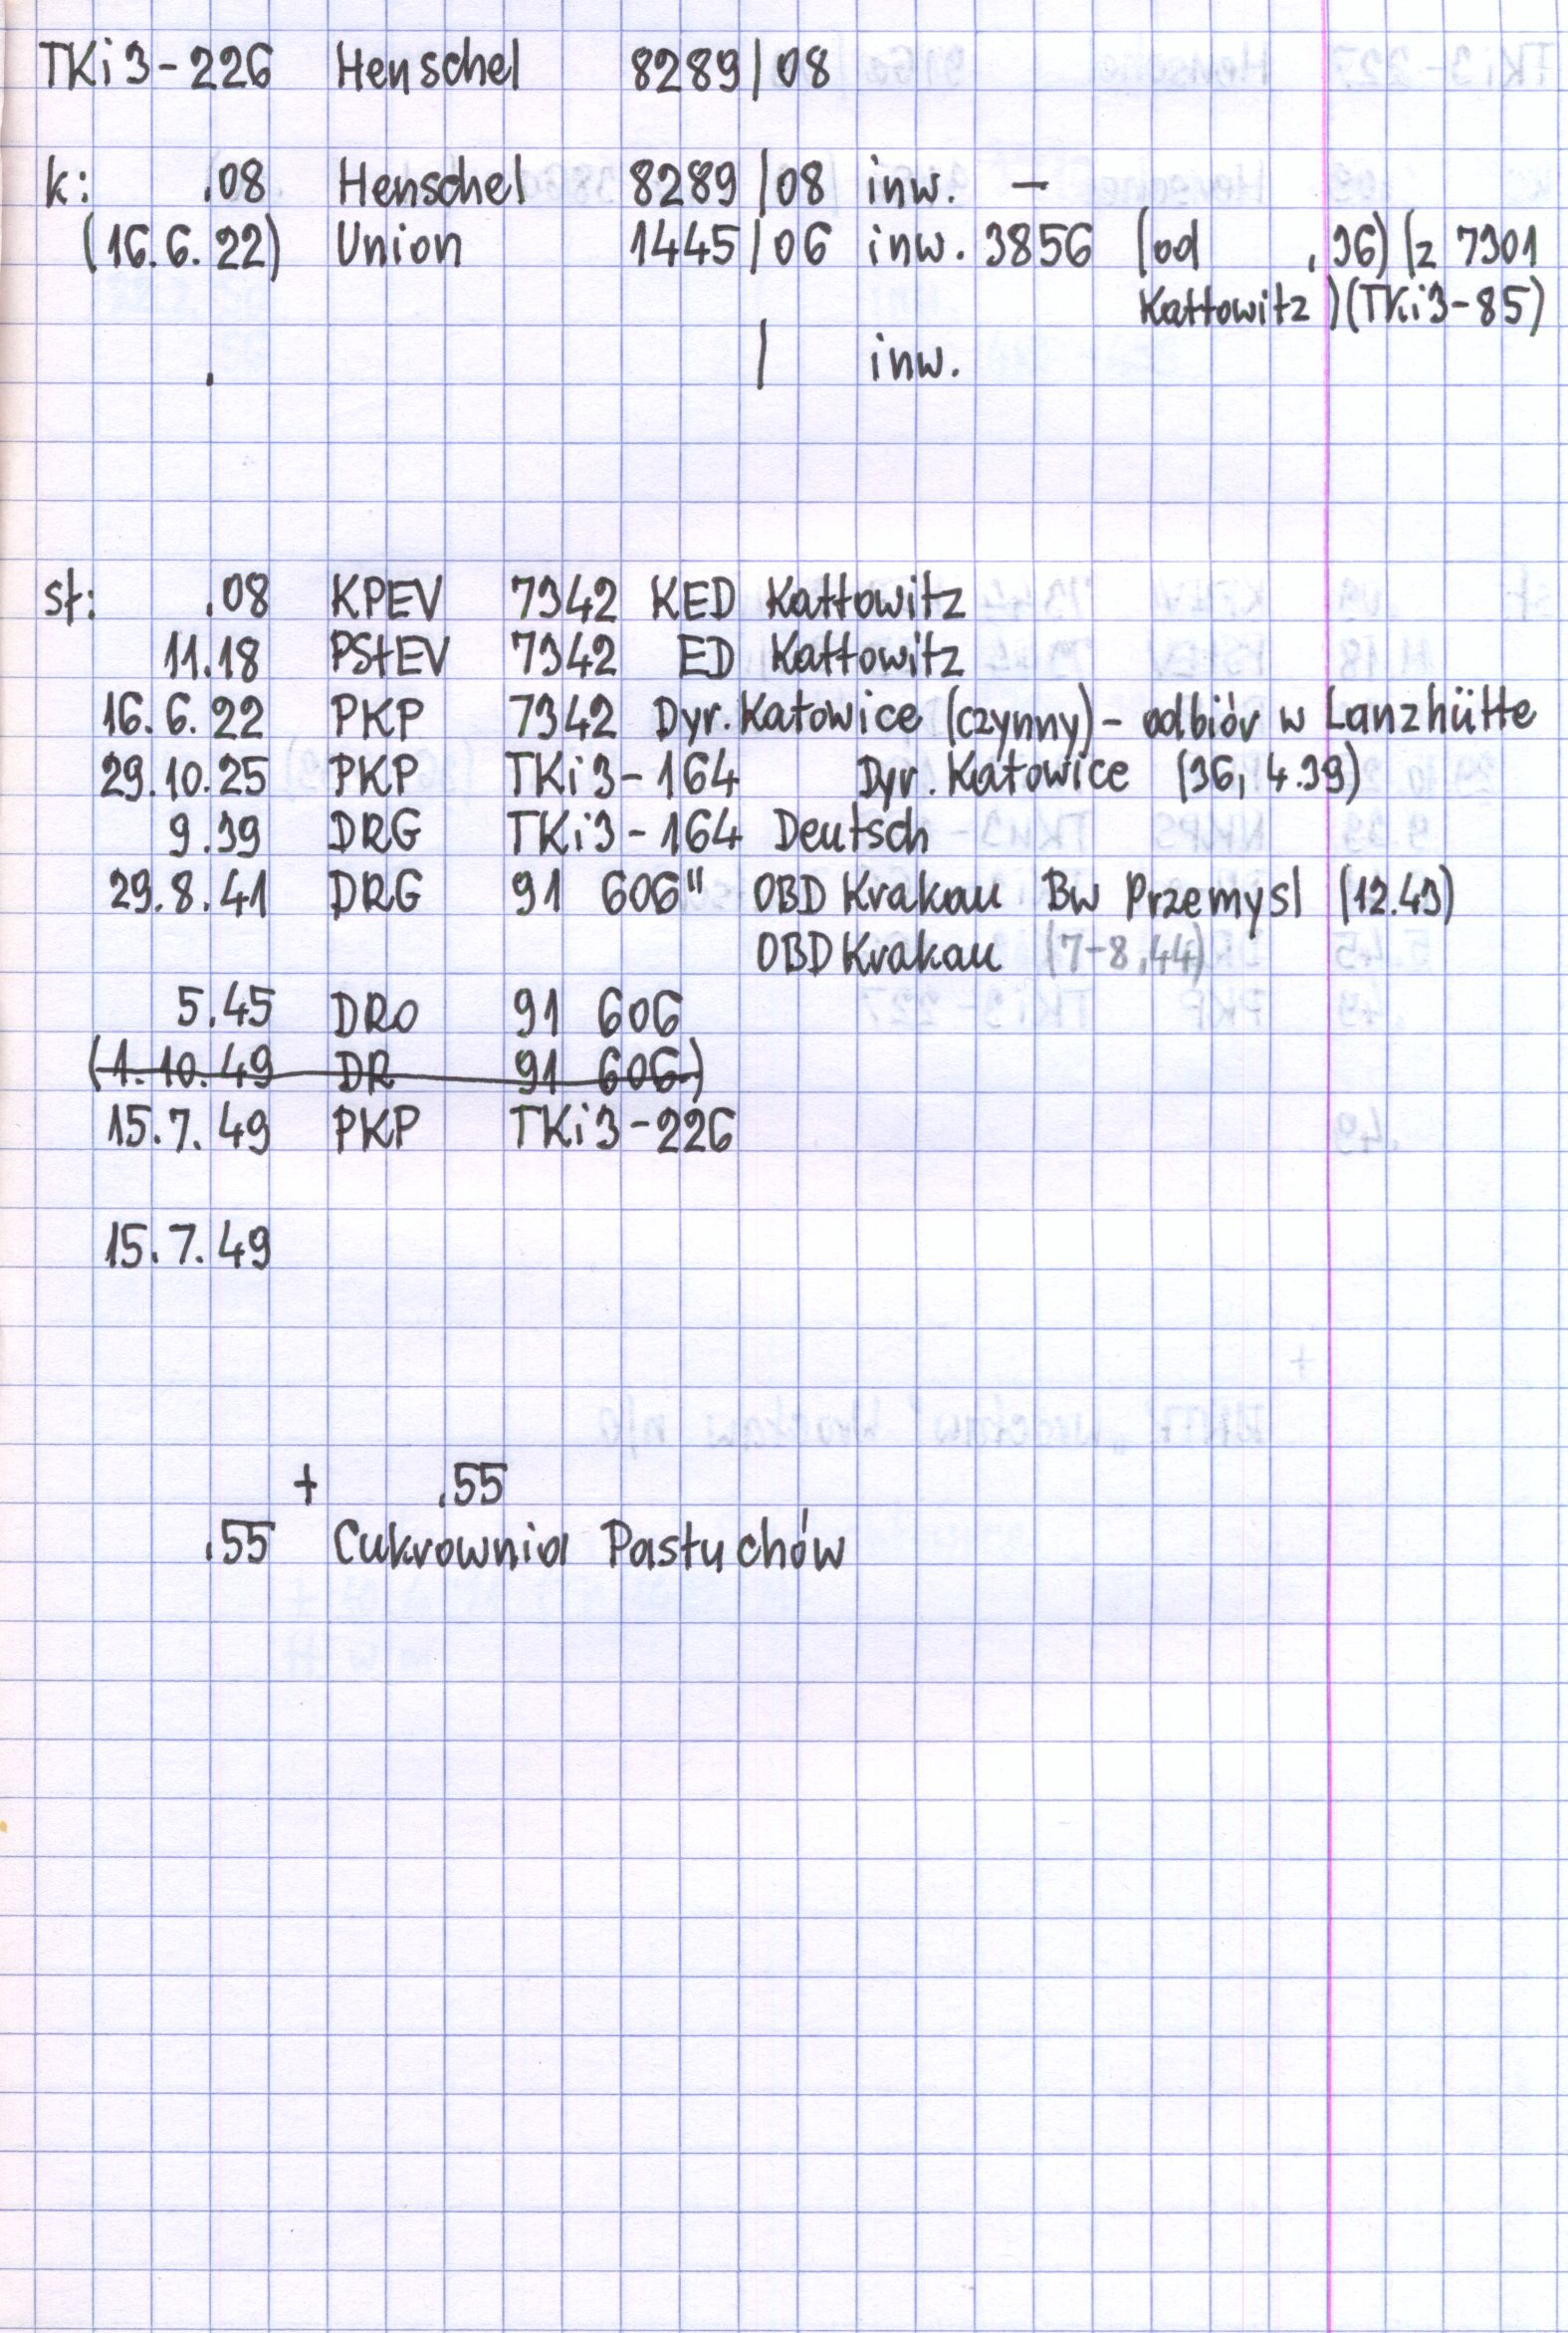 TKi3-226 Henschel 8289/08
k: .08 Henschel 8289/08 inw. —
(16.6.22) Union 1445/06 inw. 3856 (od .36) (z 7301
Kattowitz) (TKi3-85)
. / inw.
st: .08 KPEV 7342 KED Kattowitz
11.18 PStEV 7342 ED Kattowitz
16.6.22 PKP 7342 Dyr. Katowice (czynny) - odbiór w Lanzhütte
29.10.25 PKP TKi3-164 Dyr. Katowice (36, 4.39)
9.39 DRG TKi3-164 Deutsch
29.8.41 DRG 91 606" OBD Krakau Bw Przemysl (12.43)
OBD Krakau (7-8.44)
5.45 DRo 91 606
(1.10.49 DR 91 606)
15.7.49 PKP TKi3-226
15.7.49
+ .55
.55 Cukrownia Pastuchów